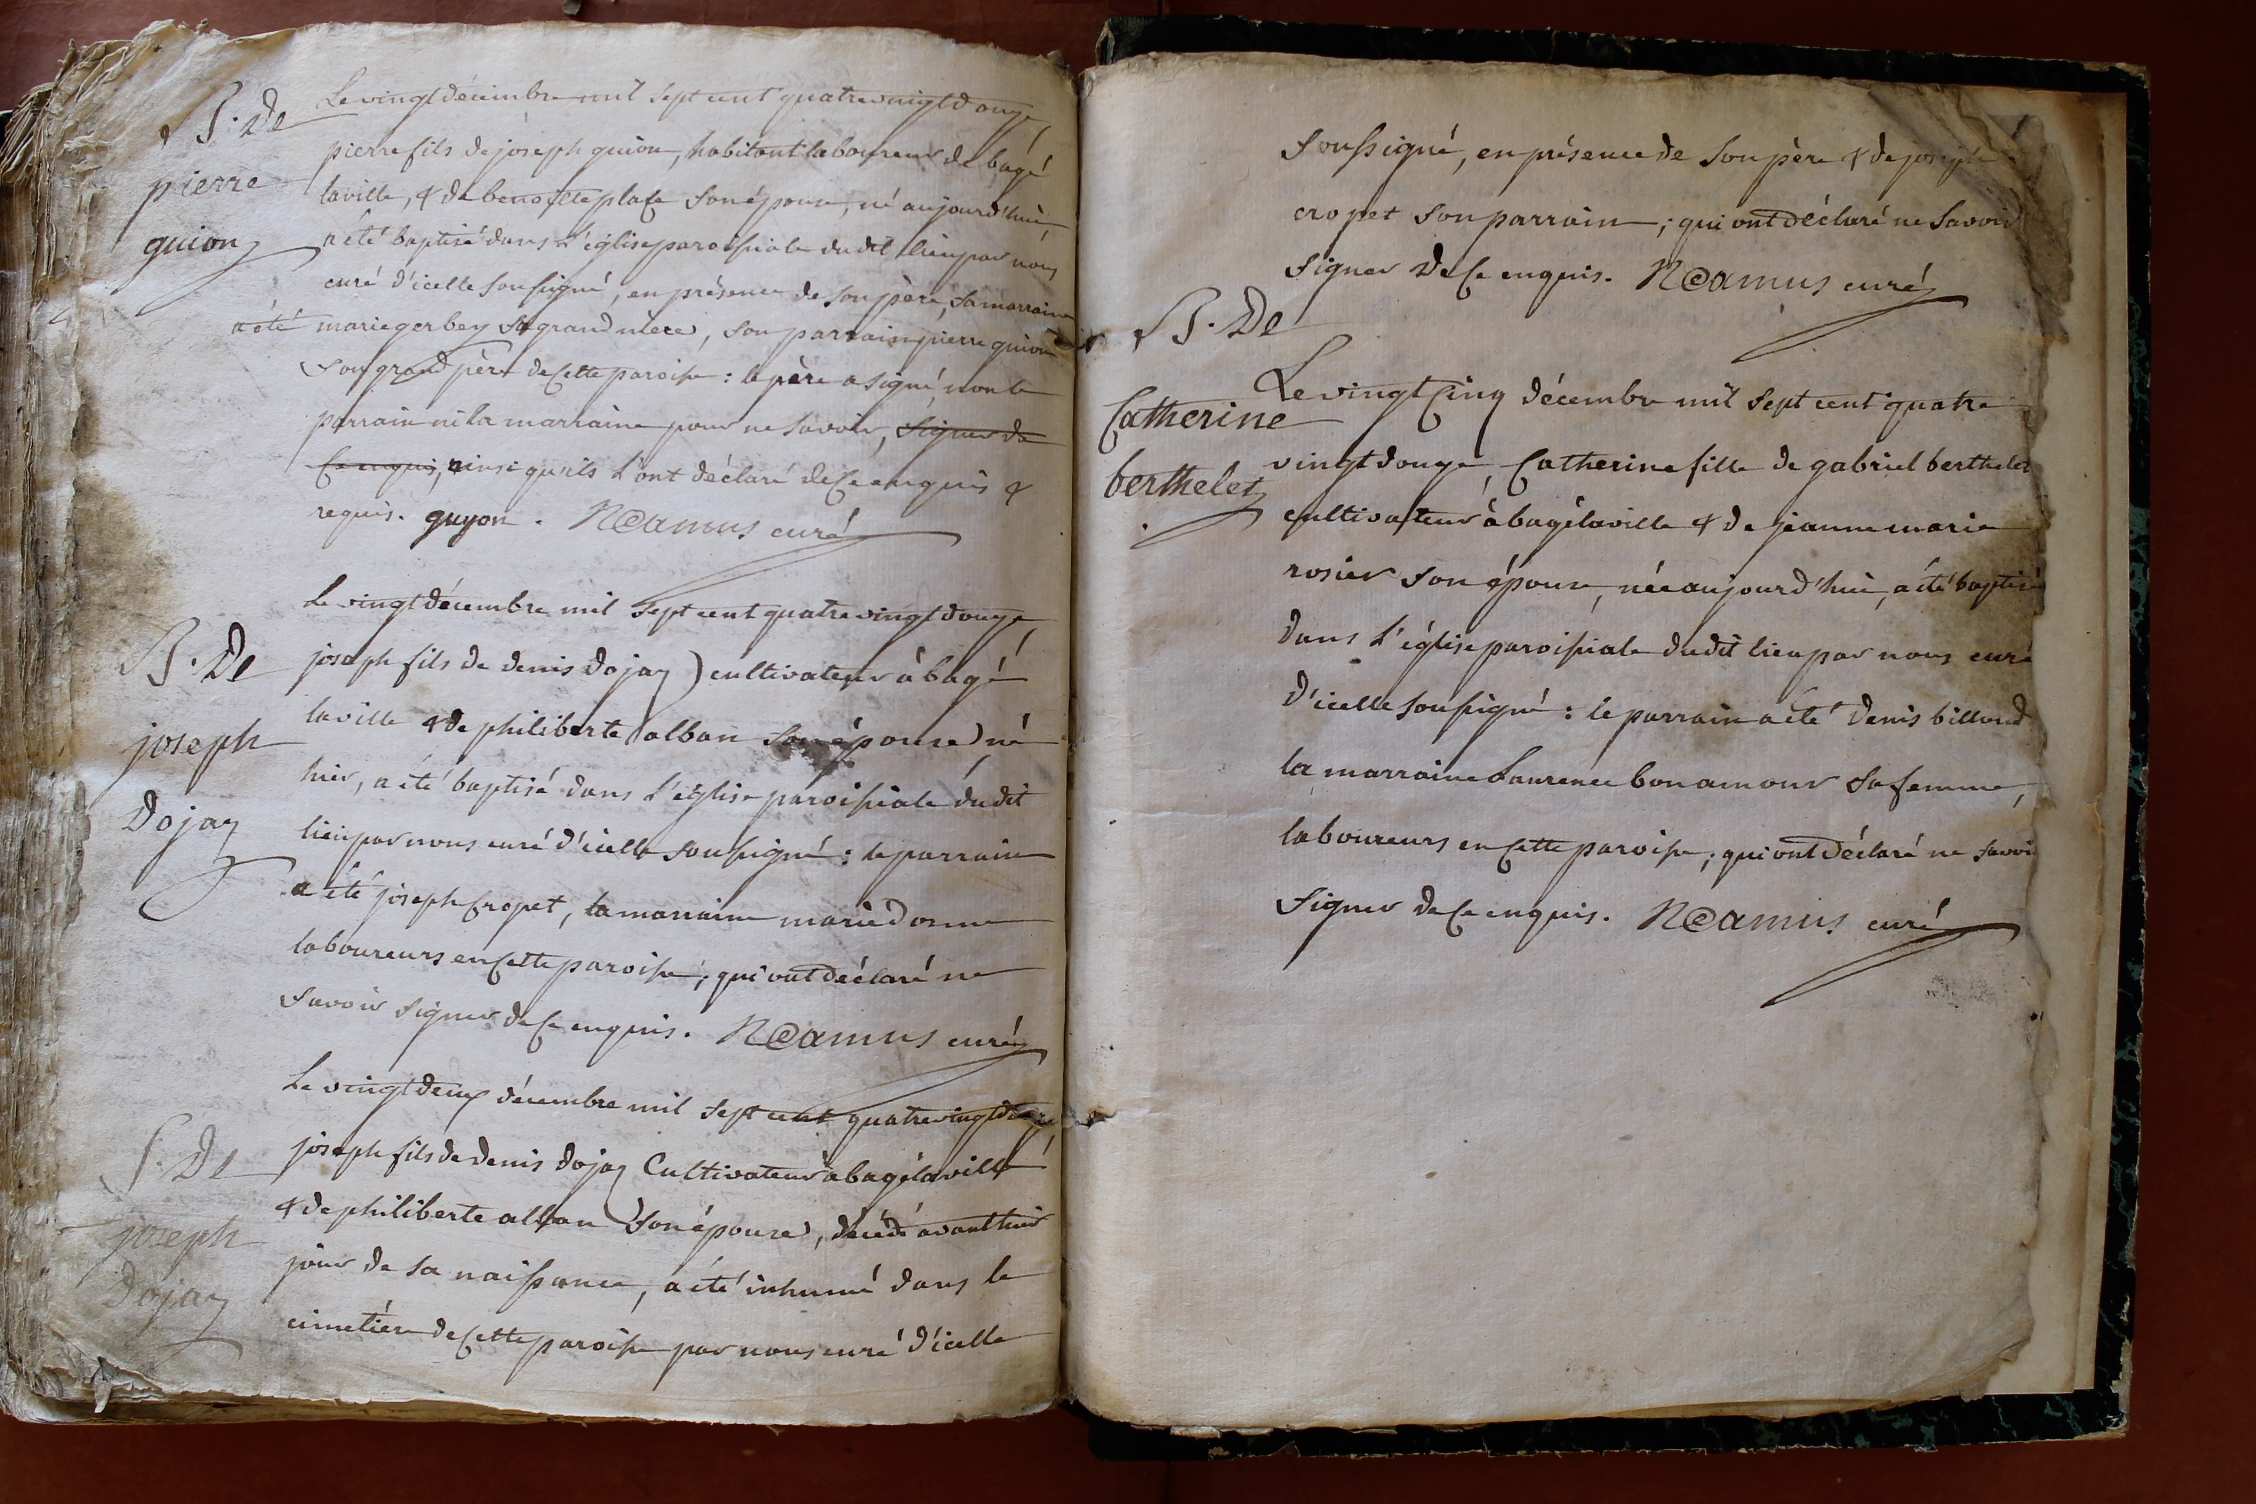 B. De
pierre
guion
Le vingt décembre mil sept cent quatre vingt douze,
pierre fils de joseph guion, habitant laboureur de bagé
laville, & de benoitte place son épouse, né aujourd'hui,
a été baptisé dans l'église paroissiale dudit lieu par nous
curé d'icelle soussigné, en présence de son père, sa marraine
a été marie gerbey sa grand mere, son parrain pierre guion
son grand père de cette paroisse : le père a signé, non le
parrain ni la marraine pour ne savoir, signer de
ce enquis, ainsi qu'ils l'ont déclaré de ce enquis &
requis. guyon. Neamus curé
B. De
joseph
Dojay
Le vingt décembre mil sept cent quatre vingt douze,
joseph fils de denis Dojay cultivateur à bagé
laville & de philiberte alban son épouse né
hier, a été baptisé dans l'église paroissiale dudit
lieu par nous curé d'icelle soussigné : le parrain
a été joseph Cropet, la marraine marie Donne
laboureurs en cette paroisse ; qui ont déclaré ne
savoir signer de ce enquis. Neamus curé
S. De
joseph
Dojay
Le vingt deux décembre mil sept cent quatre vingt douze,
joseph fils de denis Dojay Cultivateur à bagé laville
& de philiberte alban son épouse, décédé avant hier
jour de sa naissance, a été inhumé dans le
cimetière de cette paroisse par nous curé d'icelle
soussigné, en présence de son père & de joseph
cropet son parrain ; qui ont déclaré ne savoir
signer de ce enquis. Neamus curé
B. De
Catherine
berthelet
Le vingt Cinq décembre mil sept cent quatre
vingt douze, Catherine fille de gabriel berthelet
cultivateur à bagé laville & de jeanne marie
rosier son épouse, née aujourd'hui, a été baptisée
dans l'église paroissiale dudit lieu par nous curé
d'icelle soussigné : le parrain a été denis billoud
la marraine Laurence bonamour sa femme,
laboureurs en cette paroisse ; qui ont déclaré ne savoir
signer de ce enquis. Neamus curé